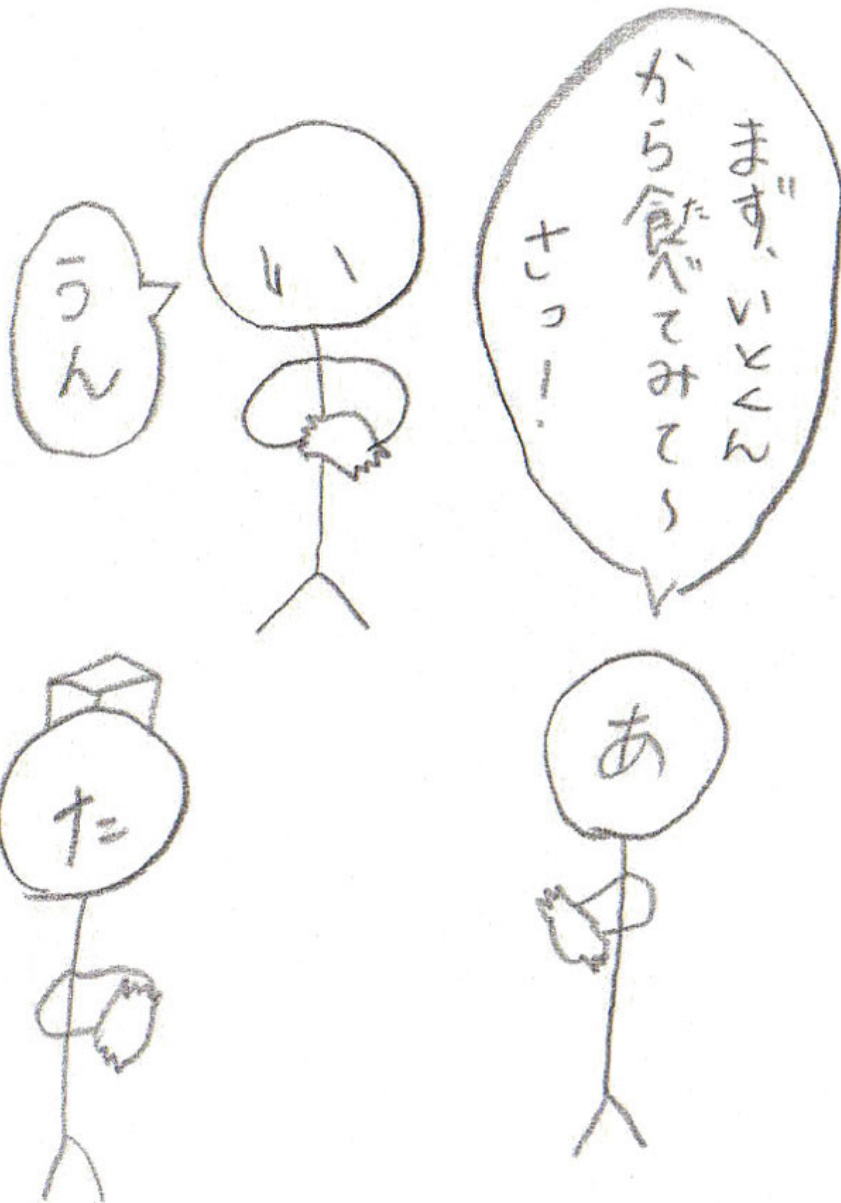 まず、いとくん
から食べてみて〜
さっ!
た
うん
い
あ
た